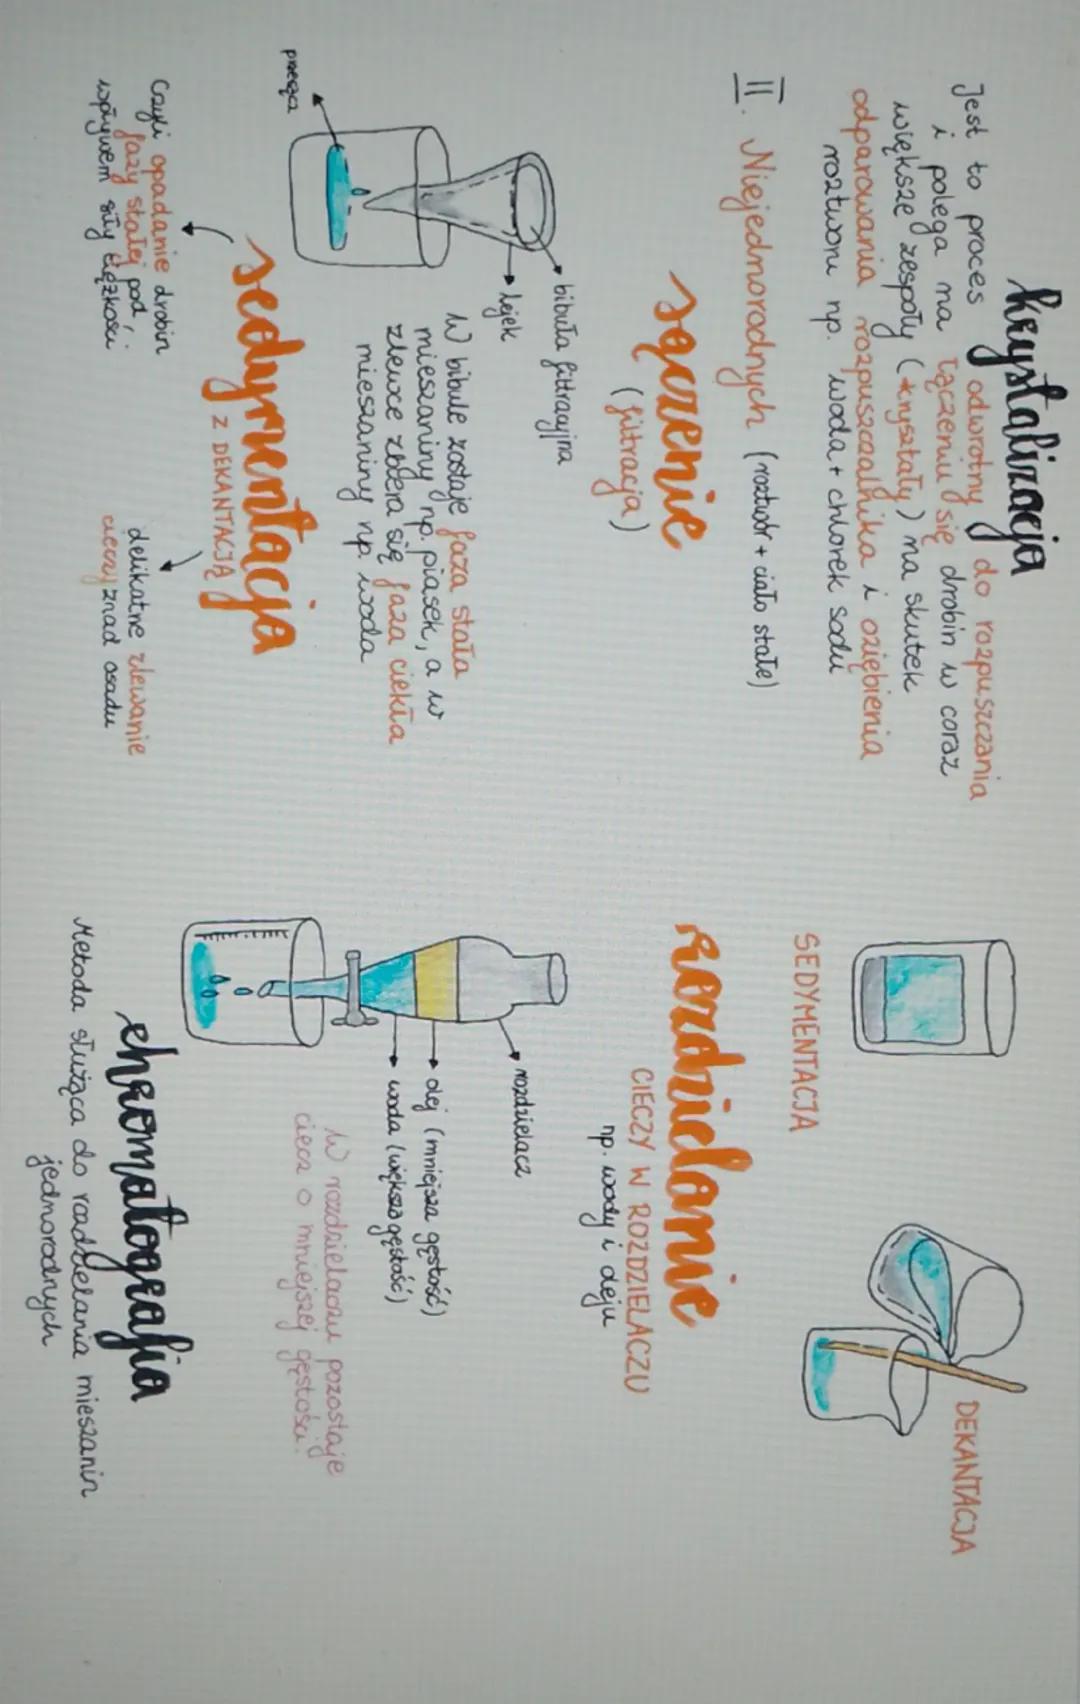 krystalizacja
Jest to proces odwrotny do rozpuszczania
i polega na łączeniu się drobin w coraz
większe zespoły (kryształy) na skutek
odparowania rozpuszczalnika i oziębienia
roztworu np. woda + chlorek sodu
II. Niejednorodnych (roztwór + ciało stałe)
sączenie
(filtracja)
bibuła filtracyjna
lejek
przesącz
W bibule zostaje faza stała
mieszaniny np. piasek, a w
zlewce zbiera się faza ciekła
mieszaniny np. woda
sedymentacja
Z DEKANTACJĄ
Czyli opadanie drobin
fazy stałej pod
wpływem siły ciężkości
delikatne zlewanie
cieczy znad osadu
SEDYMENTACJA
DEKANTACJA
Rozdzielanie
CIECZY W ROZDZIELACZU
np. wody i oleju
rozdzielacz
olej (mniejsza gęstość)
woda (większa gęstość)
W rozdzielaczu pozostaje
ciecz o mniejszej gęstości.
chromatografia
Metoda służąca do rozdzielania mieszanin
jednorodnych